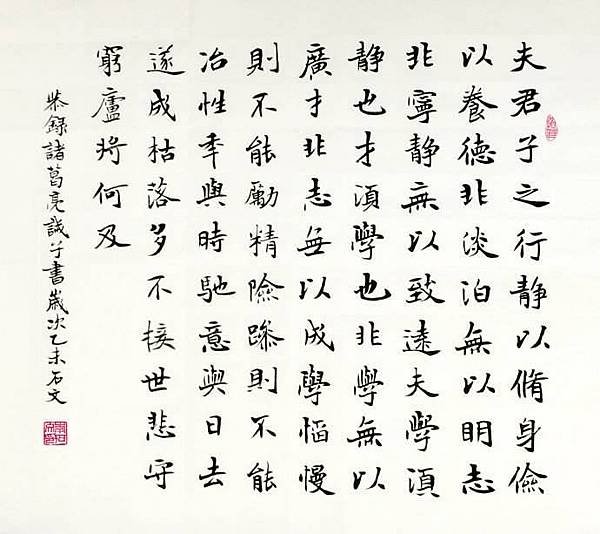 夫君子之行静以脩身儉
以養德非淡泊無以明志
非寧静無以致遠夫學須
静也才須學也非學無以
廣才非志無以成學慆慢
則不能勵精險躁則不能
冶性年與時馳意與日去
遂成枯落多不接世悲守
窮廬将何及
恭錄諸葛亮誡子書歲次乙未石文